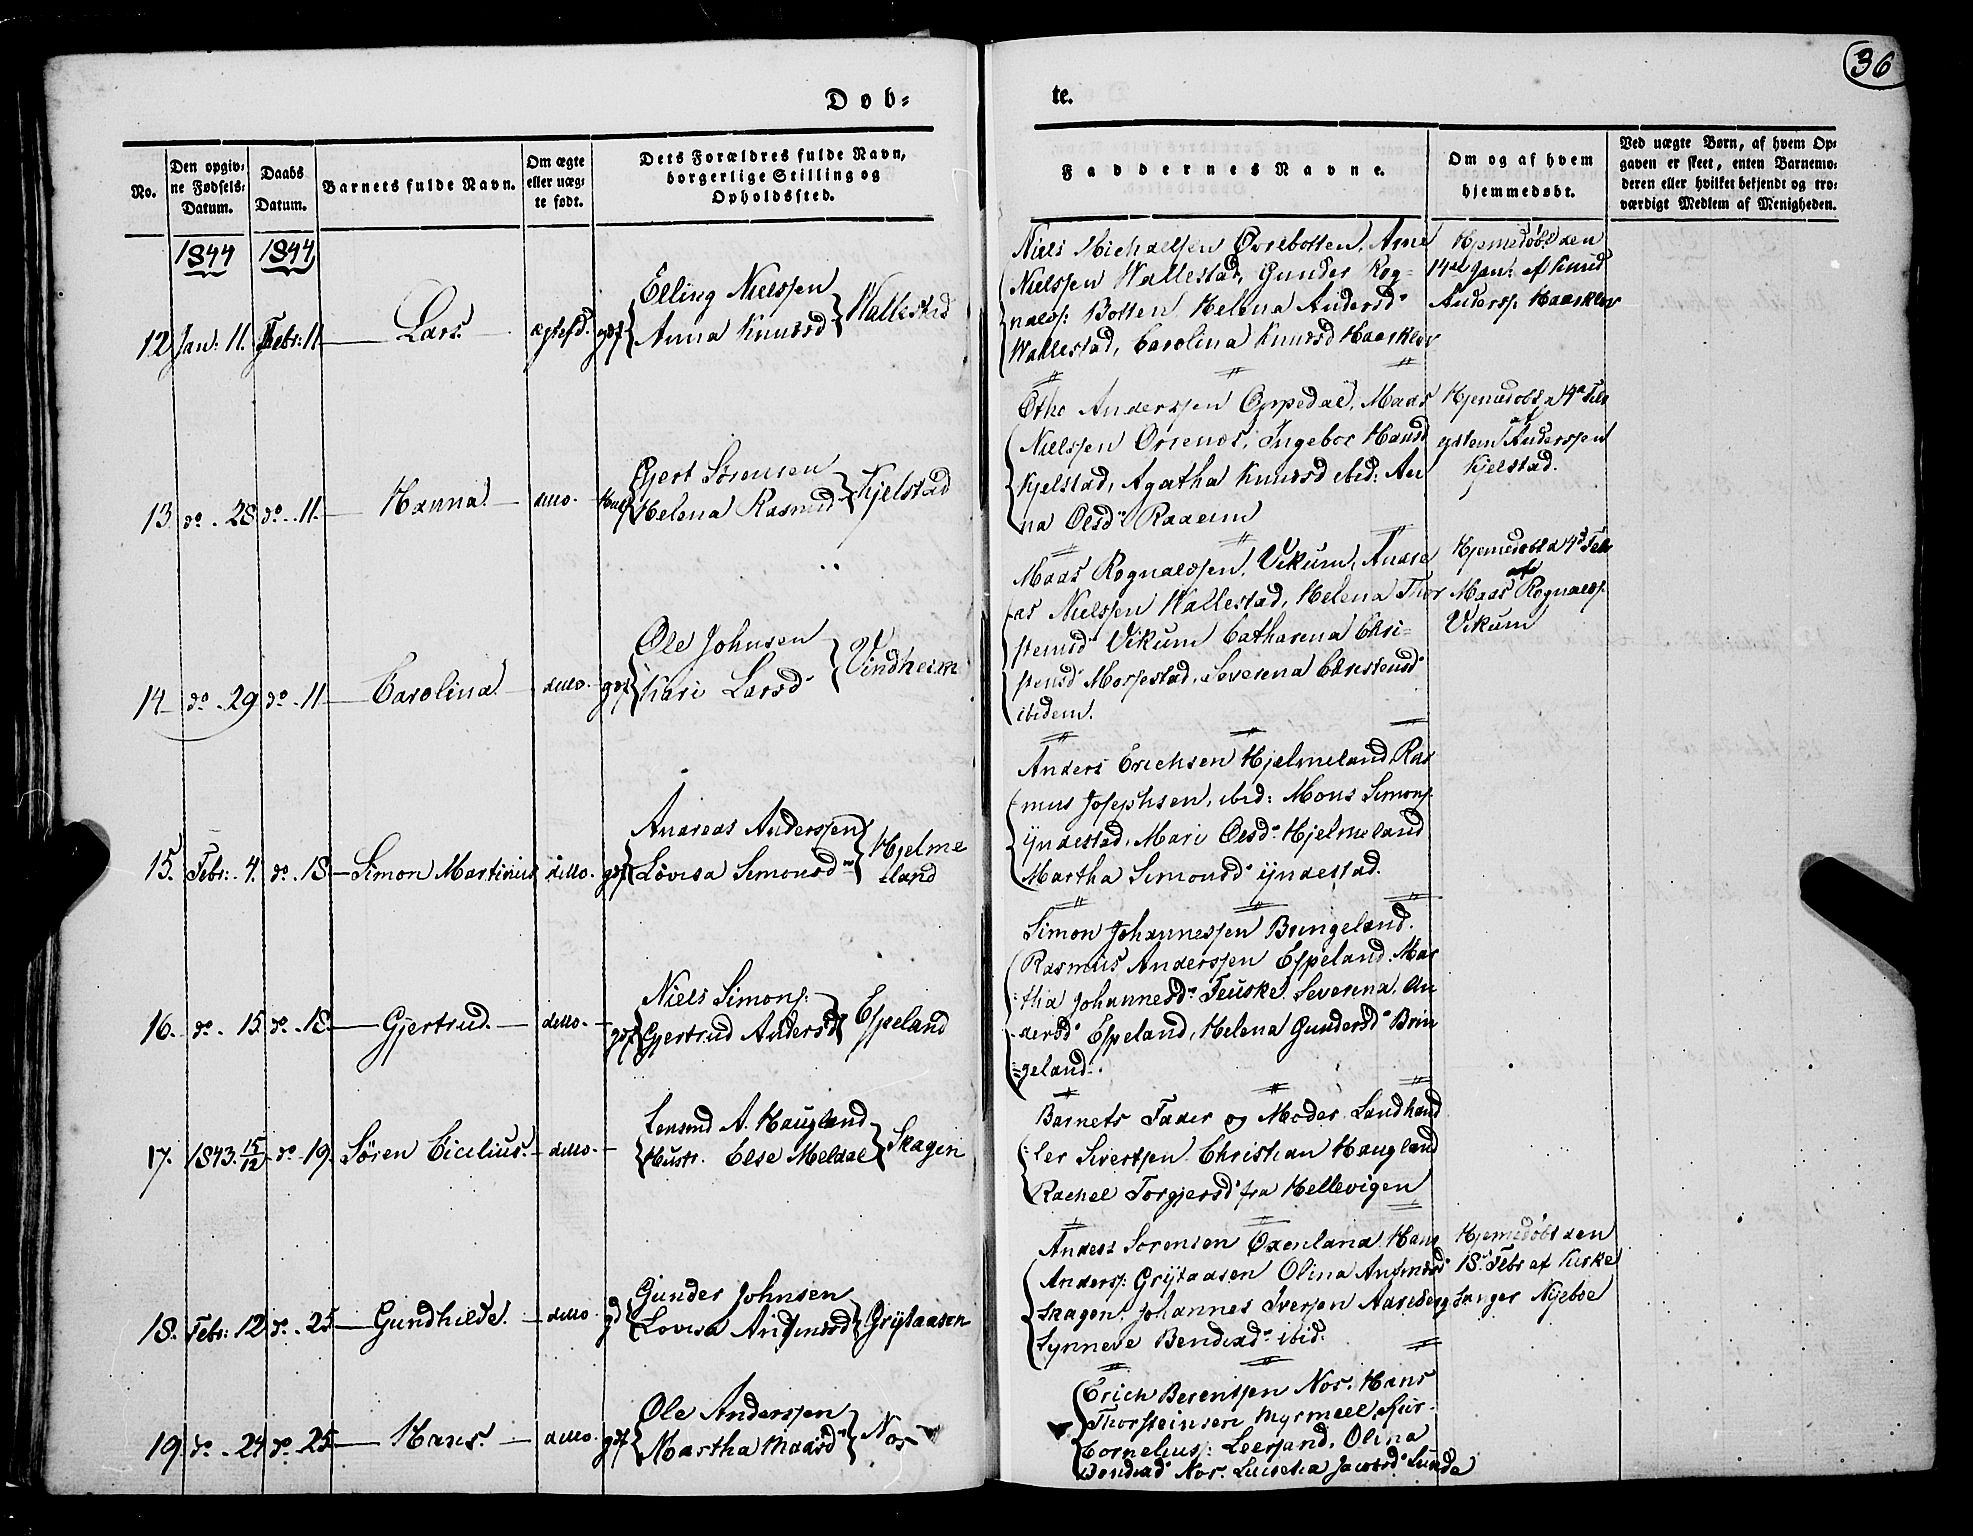 36
Døb-
te.
No.
Den opgiv-
ne Fødsels-
Datum.
Daabs
Datum.
Barnets fulde Navn.
Om ægte
eller uæg-
te født.
Dets Forældres fulde Navn,
borgerlige Stilling og
Opholdssted.
Faddernes Navne.
Om og af hvem
hjemmedøbt.
Ved uægte Børn, af hvem Op-
gaven er skeet, enten Barnemo-
deren eller hvilket bekjendt og tro-
værdigt Medlem af Menigheden.
1844 1844
12 Jan: 11. Febr: 11 Lars ægtefd. gdf
Elling Nielssen
Anna Knudsd
Wallestad
Niels Michaelsen Øvrebotten, Arne
Nielssen Wallestad, Gunder Rog-
naldsp: Botten Helena Andersd
Wallestad, Carolina Knudsd Haarklov
Hjemedøbt den
14de Jan: af Knud
Andersp: Haarklov
13 do. 28 do. 11. Hanna ditto.
Gjert Sørensen
Helena Rasmusd
Kjelstad
Otho Anderssen Oppedal, Maas
Nielssen Ørenes, Ingebor Hansd
Kjelstad, Agatha Knudsd ibid: An
na Olsd Raaeim
Hjemedøbt d 4de Feb
af
Anderssen
Kjelstad.
14 do. 29 do. 11 Carolina ditto. gdf
Ole Johnsen
Kari Larsd
Vindheim
Maas Rognaldsen, Vikum, Andre
as Nielssen Wallestad, Helena Thor
stensd Vikum Catharena Chri-
stensd Morsestad, Severena Christensd
ibidem.
Hjemedøbt d 4de Feb
af
Maas Rognalds.
Vikum
15. Febr: 4. do. 18. Simon Martinius ditto. gdf
Andreas Anderssen
Lovisa Simonsd
Hjelme
land
Anders Erichsen Hjelmeland, Ras
mus Josephsen, ibid: Mons Simonsp.
Yndestad, Mari Olsd Hjelmeland
Martha Simonsd Yndestad.
16. do. 15 do. 18. Gjertrud. ditto. gdf
Niels Simonsp.
Gjertrud Andersd
Espeland
Simon Johannessen Bringeland.
Rasmus Anderssen Espeland. Mar
tha Johannesd Teuske. Severena An
dersd Espeland, Helena Gundersd Brin
geland.
17. 1843. 15/12 do. 19. Søren Cicelius. ditto.
Lensmd A. Haugland
Hustr. Else Meldal
Skagen
Barnets Fader og Moder Landhand
ler Sivertsen Christian Haugland
Rachel Torgjersd fra Hellevigen
18. Febr: 12 do. 25 Gundhilde. ditto. gd
Gunder Johnsen
Lovisa Andersd
Grytaasen
Anders Sørensen Oxenland. Hans
Andersp. Grytaasen Olina Andersd
Skagen, Johannes Iversen Aareberg
Synneve Bendixd ibid.
Hjemedøbt den
18d Febr af Kirke
Sanger Nyebøe
19 do. 24 do. 25 Hans. ditto. gdf
Ole Anderssen
Martha Maasd
Nos
Erich Berentsen Nos. Hans
Thorsteinsen Myrmell,
Corneliusp: Leersand, Olina
Bendixd Nos. Jacobsd Sunde